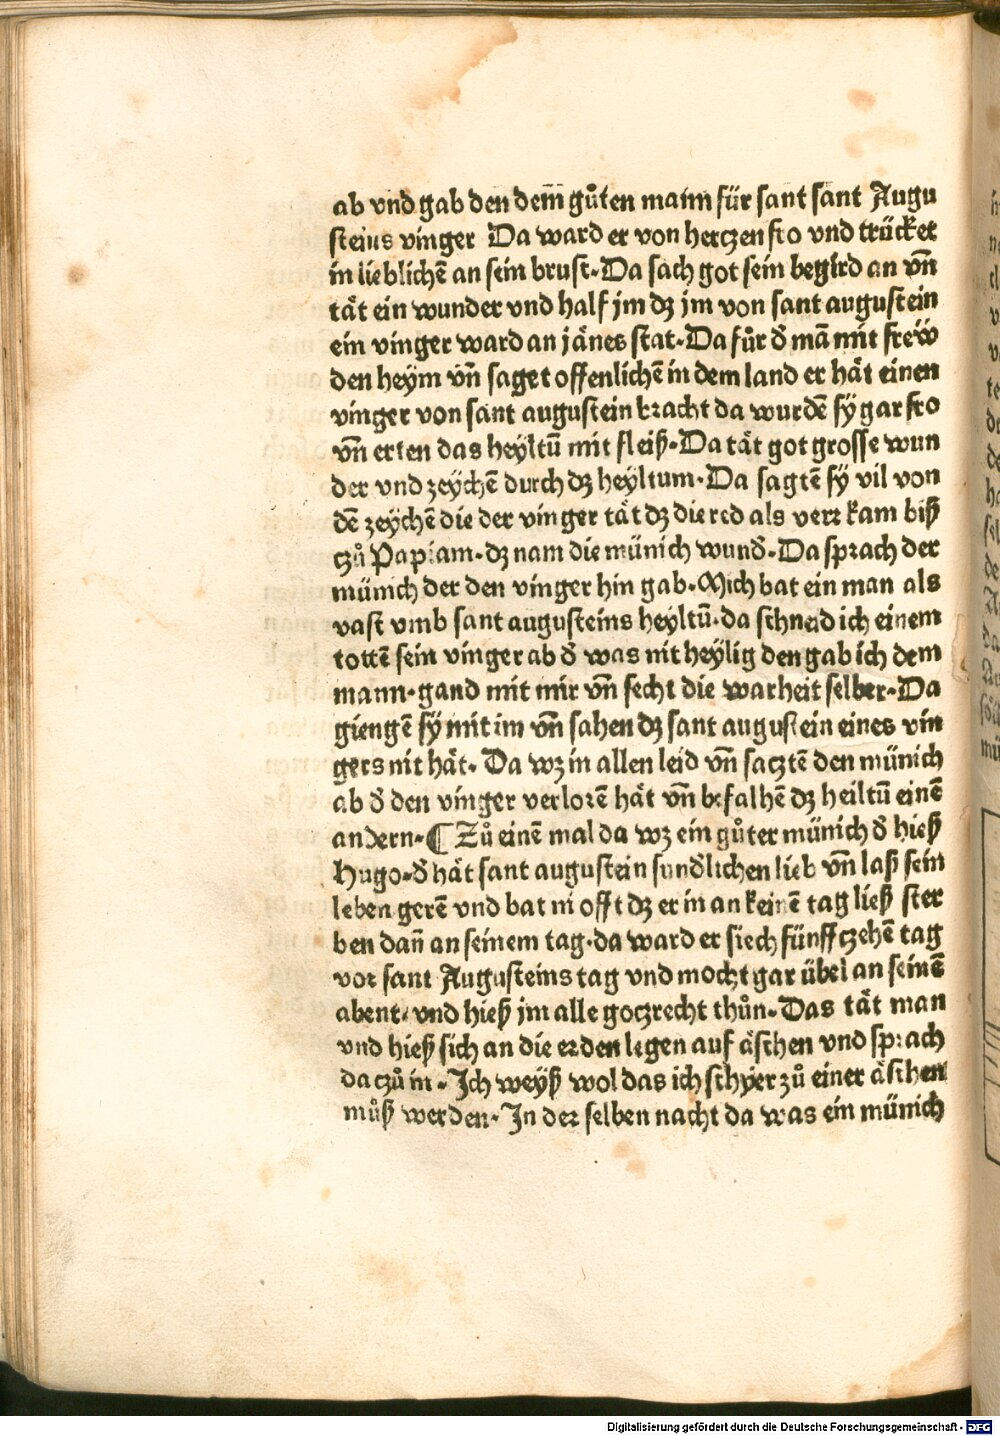 ab vnd gab den dem̄ gůten mann für sant sant Augu
steins vinger Da ward er von hertzen fro vnd trücket
in lieblichē an sein brust. Da sach got sein begird an vn̄
tät ein wunder vnd half jm dz jm von sant augustein
ein vinger ward an jänes stat. Da fůr d̕ mā mit frew̎
den heÿm vn̄ saget offenlichē in dem land er hät einen
vinger von sant augustein bracht da wurdē sÿ gar fro
vn̄ erten das heÿltū mit fleiß. Da tät got grosse wun
der vnd zeÿchē durch dz heÿltum. Da sagtē sÿ vil von
dē zeÿchē die der vinger tät dz die red als verr kam biß
czů Papiam. dz nam die münich wund̕. Da sprach der
münich der den vinger hin gab. Mich bat ein man als
vast vmb sant augusteins heÿltū. da schneid ich einem
tottē sein vinger ab d̕ was nit heÿlig den gab ich dem
mann. gand mit mir vn̄ secht die warheit selber. Da
giengē sÿ mit im vn̄ sahen dz sant augustein eines vin
gers nit hät. Da wz in allen leid vn̄ sacztē den münich
ab d̕ den vinger verlorē hät vn̄ befalhē dz heiltū einē
andern. ¶ Zů einē mal da wz ein gůter münich d̕ hieß
Hugo. d̕ hät sant augustein sund̕lichen lieb vn̄ laß sein
leben gerē vnd bat in offt dz er in an keinē tag ließ ster
ben dan̄ an seinem tag. da ward er siech fünffczehē tag
vor sant Augusteins tag vnd mocht gar übel an seinē
abent. vnd hieß jm alle goczrecht thůn. Das tät man
vnd hieß sich an die erden legen auf äschen vnd sprach
da czů in. Ich weÿß wol das ich schÿer zů einer äschen
můß werden. In der selben nacht da was ein münich
Digitalisierung gefördert durch die Deutsche Forschungsgemeinschaft - DFG